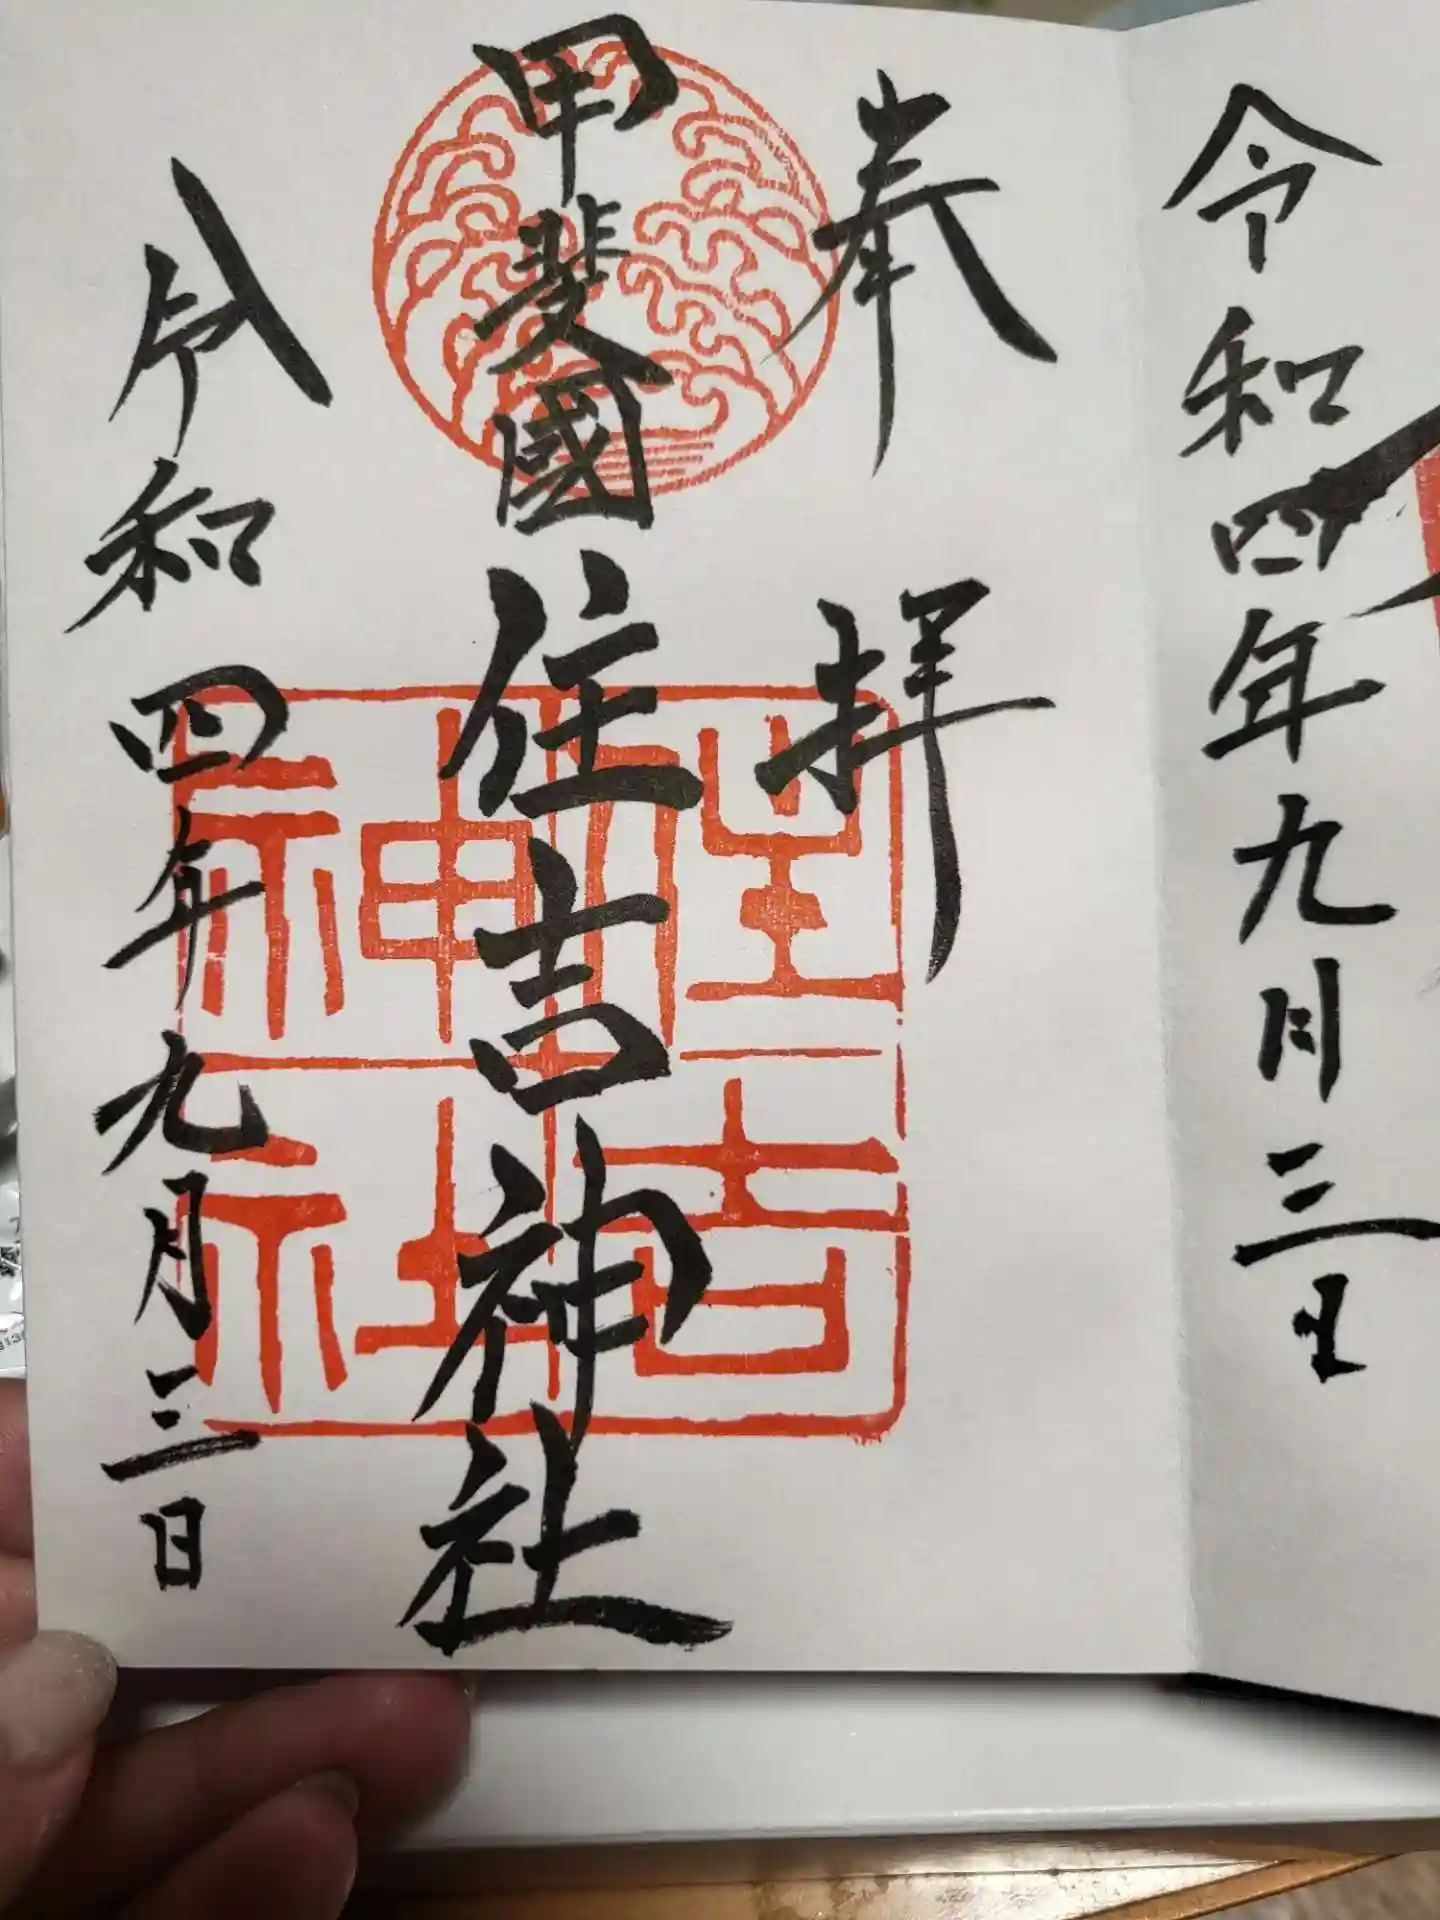 令和四年九月三日
奉拝
甲斐國
住吉神社
住吉神社
令和四年九月三日